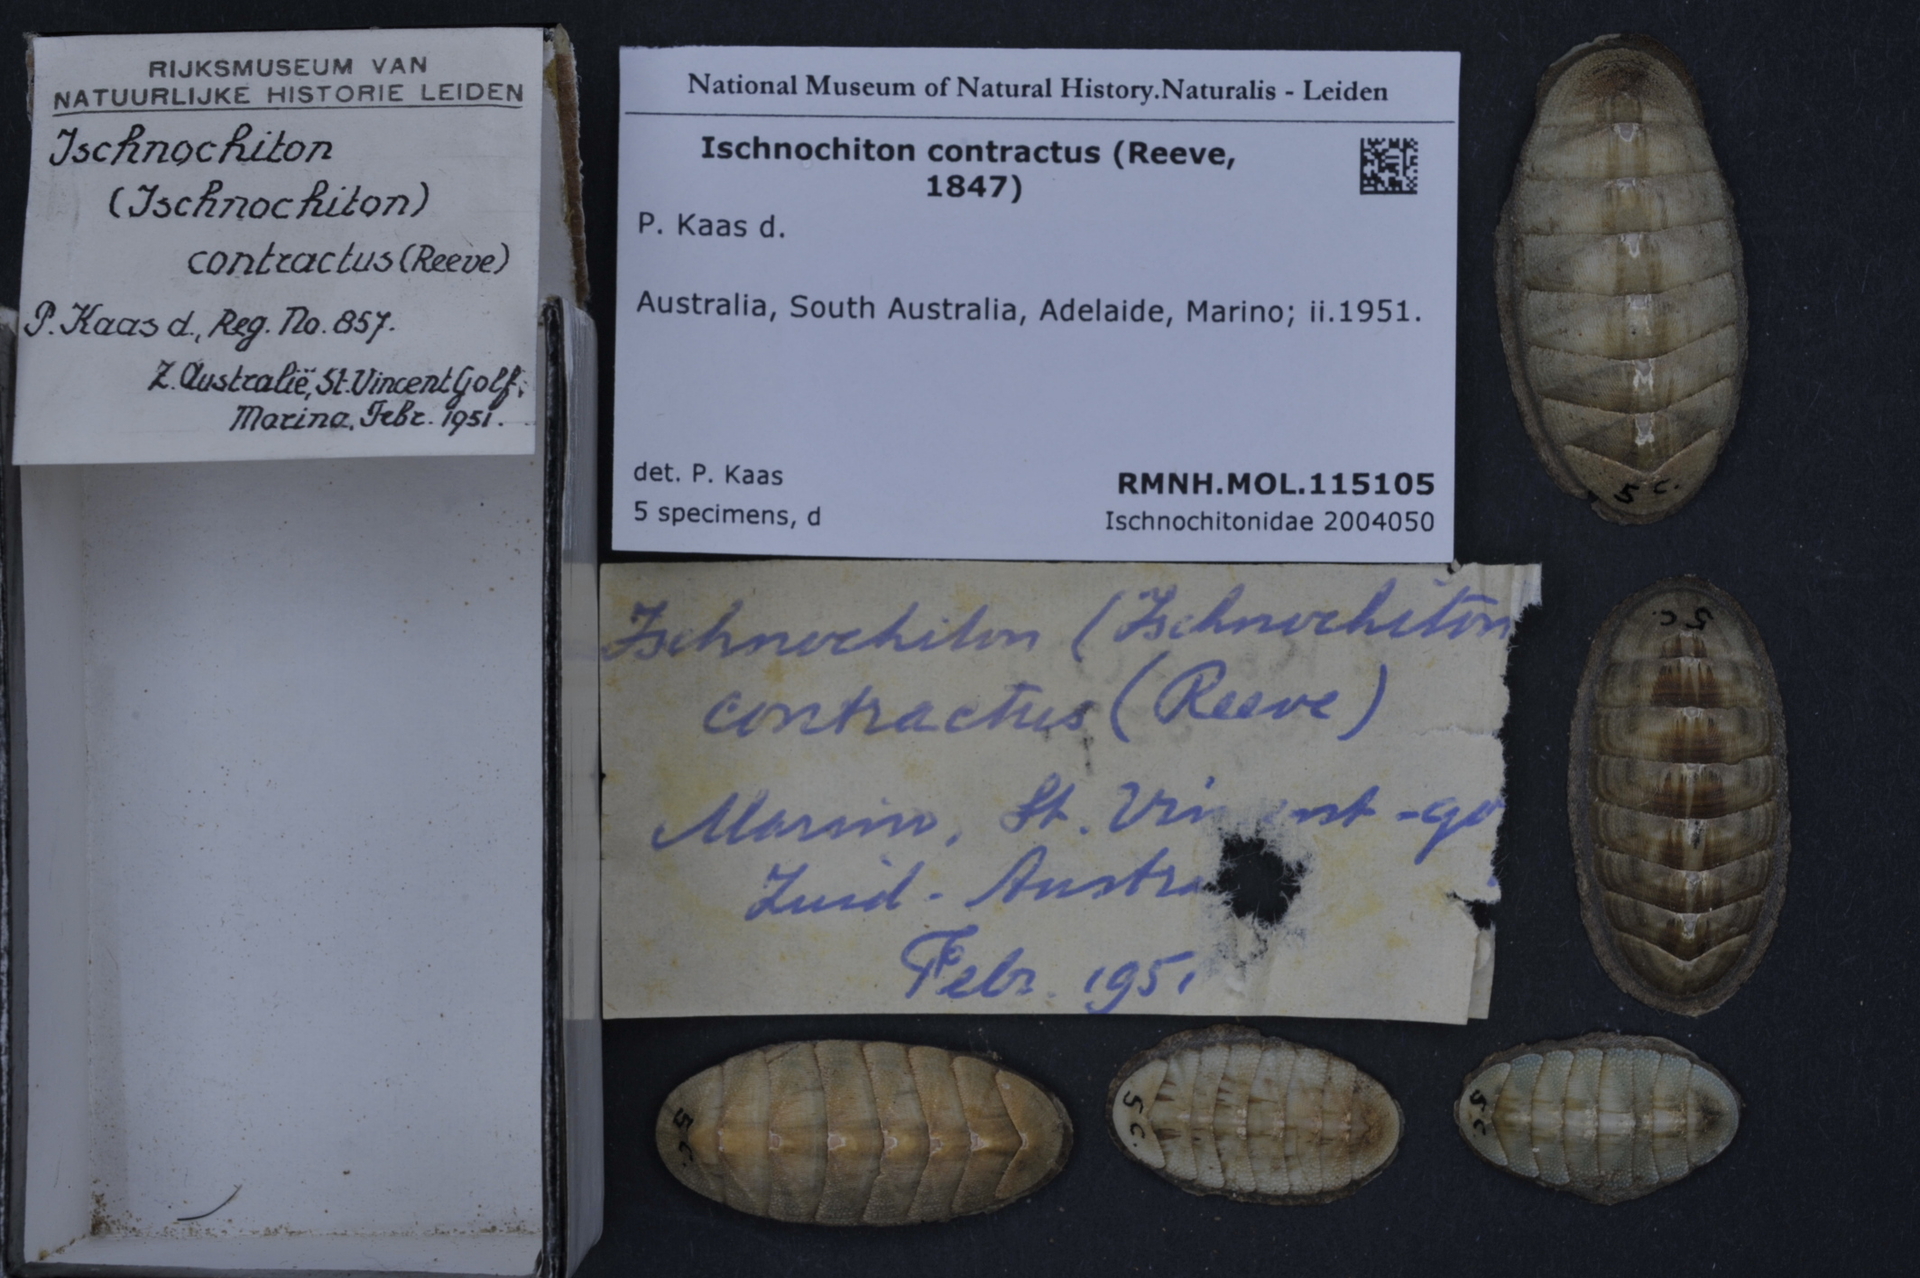 RIJKSMUSEUM VAN
NATUURLIJKE HISTORIE LEIDEN
Ischnochiton
(Ischnochiton)
contractus (Reeve)
P. Kaas d., Reg. No. 857.
Z. Australië, St. Vincent Golf,
Marina, Febr. 1951.
National Museum of Natural History.Naturalis - Leiden
Ischnochiton contractus (Reeve,
1847)
P. Kaas d.
Australia, South Australia, Adelaide, Marino; ii.1951.
det. P. Kaas
5 specimens, d
RMNH.MOL.115105
Ischnochitonidae 2004050
Ischnochiton (Ischnochiton
contractus (Reeve)
Marino, St. Vin ent-go
Zuid-Austra
Febr. 1951
5 c.
5 c.
5 c.
5 c.
5 c.